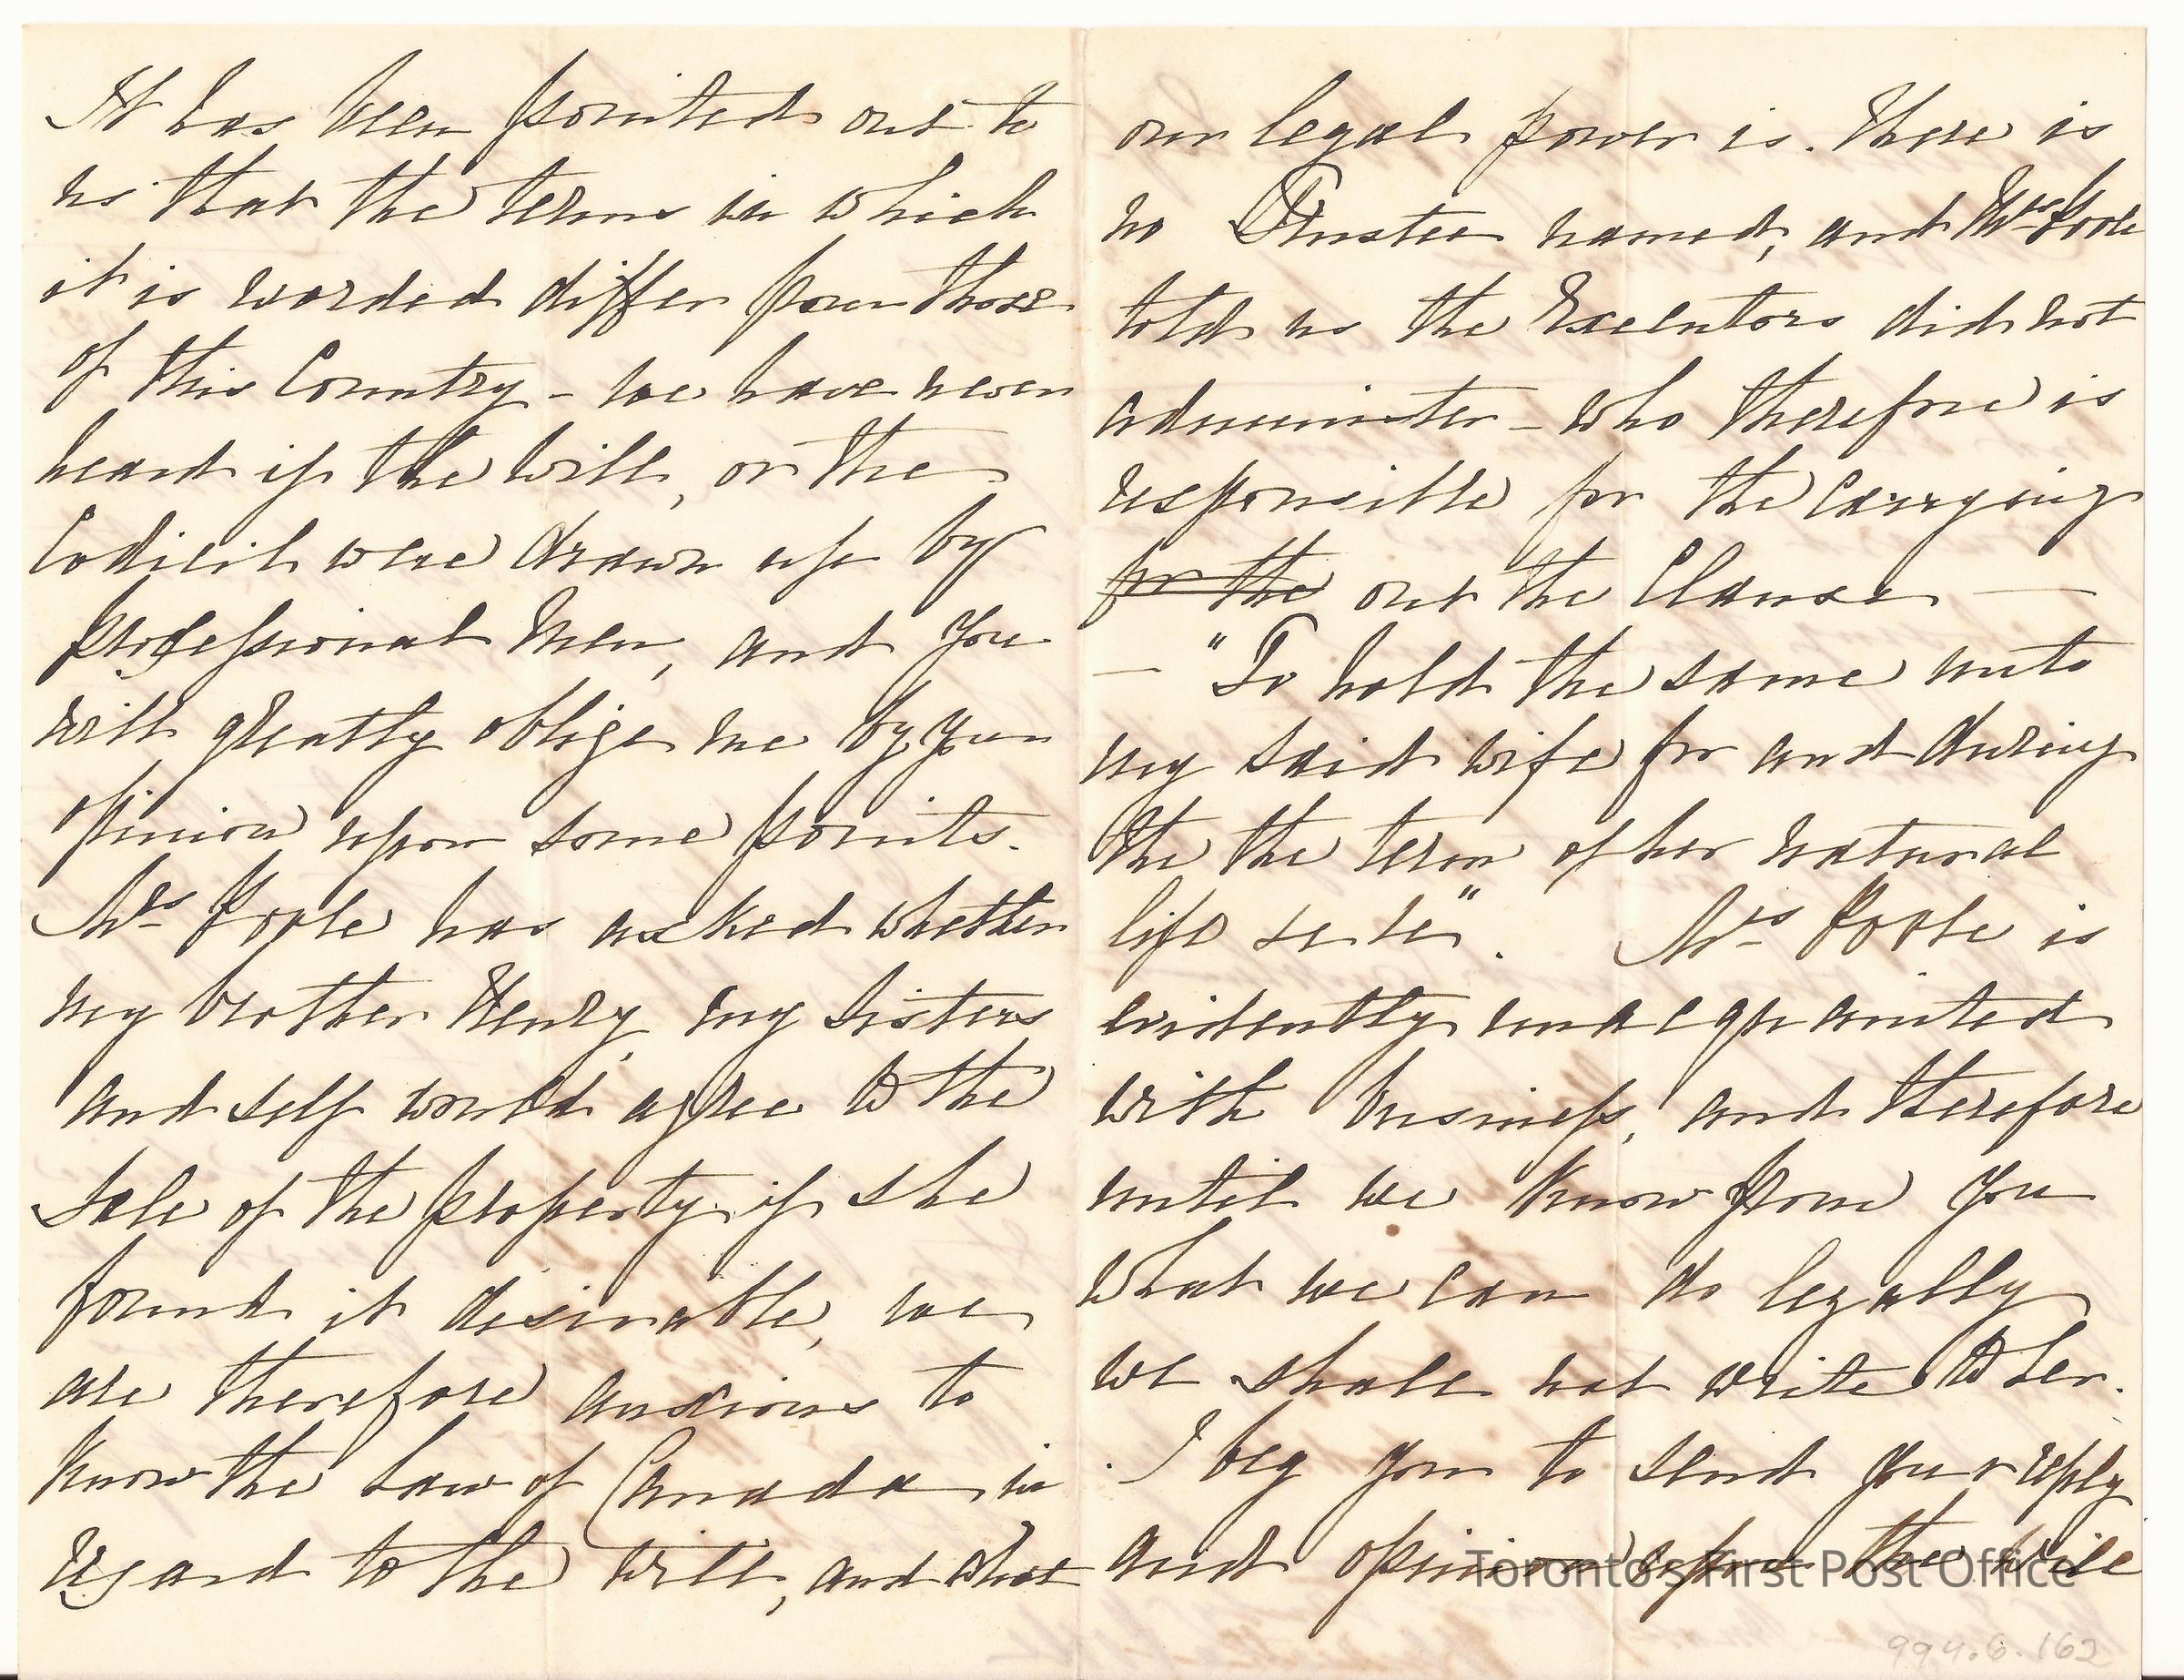 It has been pointed out to
us that the terms in which
it is worded differ from those
of this Country - we have never
heard if the Will, or the
Codicil were drawn up by
professional Men, and you
will greatly oblige me by your
opinion upon some points.
Mrs Poole has asked whether
my brother Henry, my Sisters
and self would agree to the
Sale of the property if she
found it desirable, we
are therefore anxious to
know the Law of Canada in
regard to the Will, and what
our legal power is. There is
no Trustee named, and Mrs Poole
told us the Executors did not
administer - who therefore is
responsible for the carrying
for the out the Clause —
— "To hold the same unto
my said wife for and during
the the term of her natural
life &c &c". Mrs Poole is
evidently unacquainted
with business, and therefore
until we know from you
what we can do legally
we shall not write to her.
I beg you to send your reply
and opinion upon the Will
Toronto's First Post Office
994.6.162